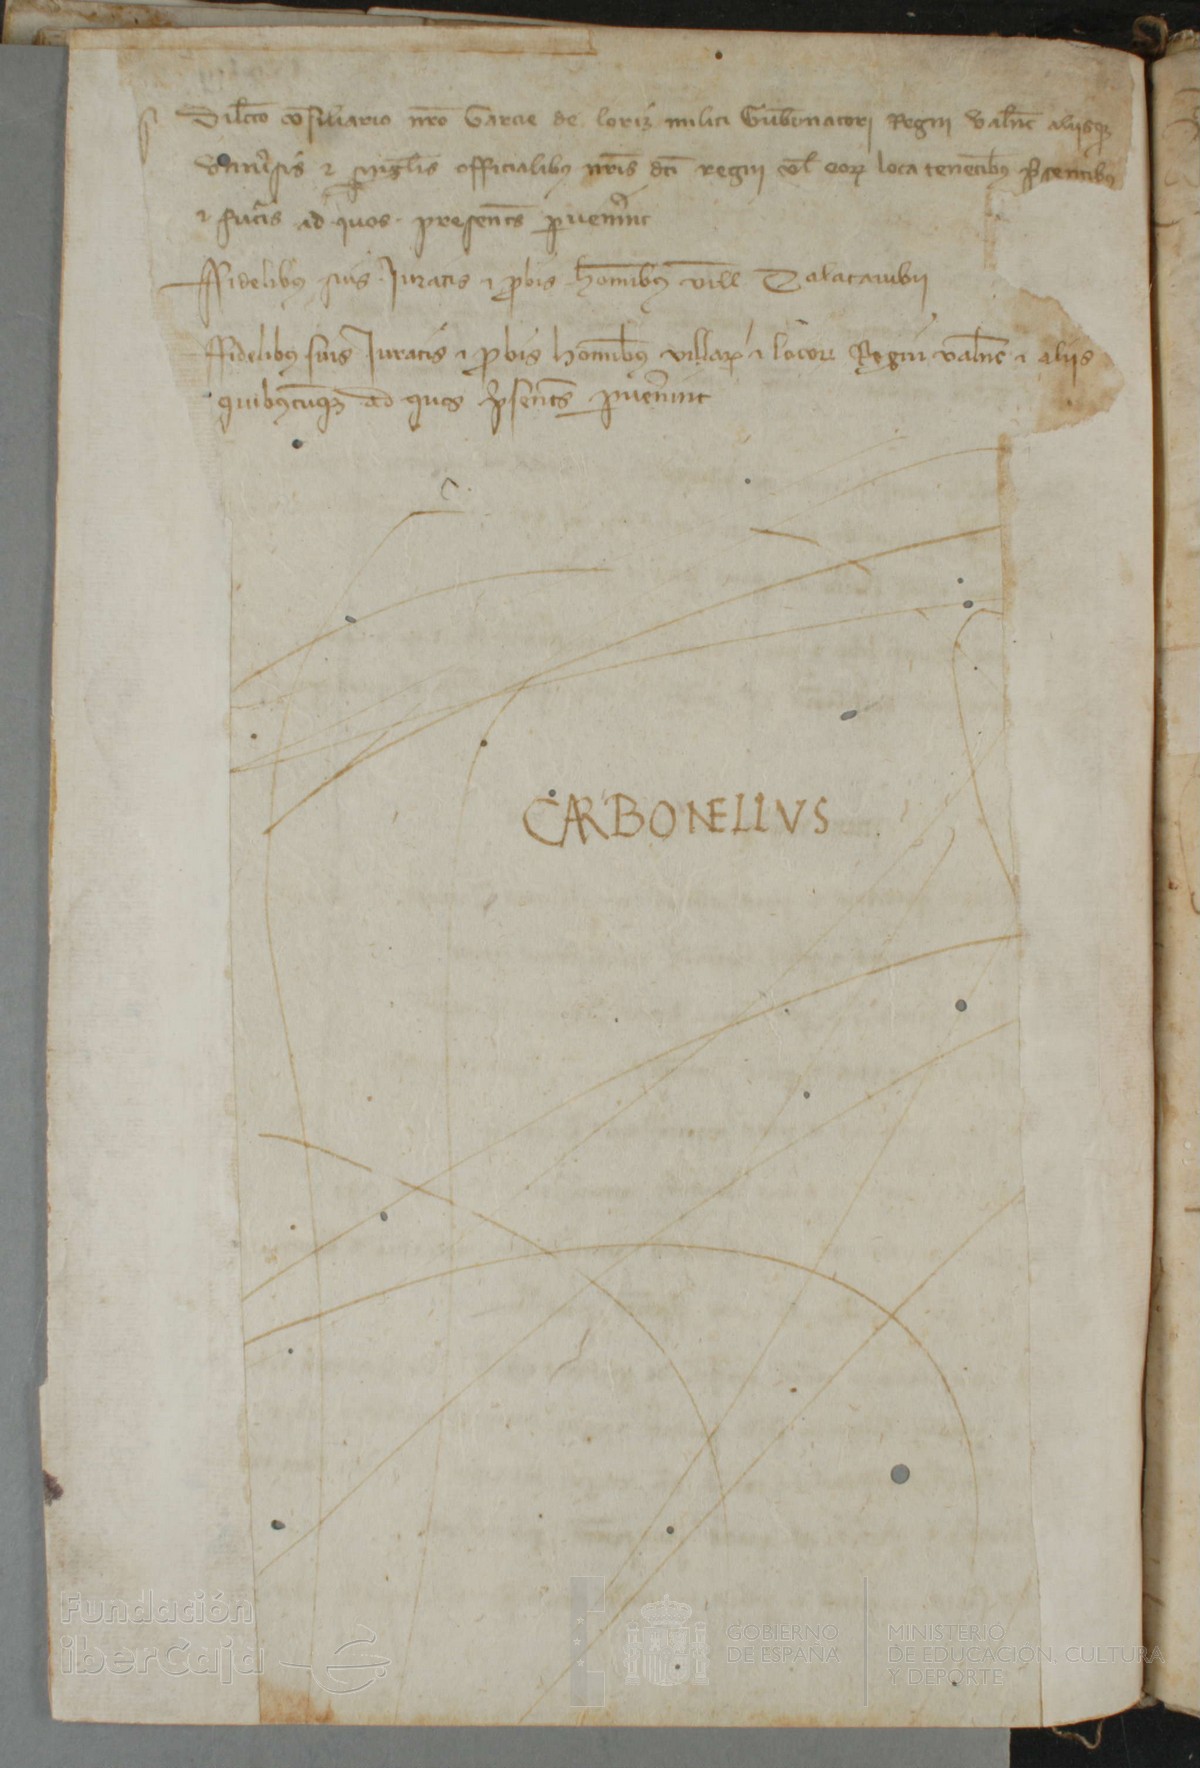 Dilecto consiliario nro Garcie de loriz militi Gubernatori Regni Valnc aliisqz
Universis ⁊ singulis officialibus nris dci regni vel eorz loca tenentibus presentibus
⁊ futuris ad quos presentes pervenerint
ffidelibus suis Juratis ⁊ probis hominibus ville Calataiubii
ffidelibus suis Juratis ⁊ probis hominibus villarz ⁊ locorz Regni valnc ⁊ aliis
quibuscumqz ad quos presentes pervenerint
CARBONELLVS
Fundación
iberCaja
GOBIERNO
DE ESPAÑA
MINISTERIO
DE EDUCACIÓN, CULTURA
Y DEPORTE